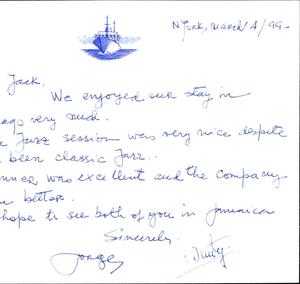 N York, March 4/99-
Jack,
We enjoyed our stay in
ago very much.
Jazz session was very nice despite
been classic Jazz.
nner was excellent and the company
better.
hope to see both of you in Jamaica
Sincerely.
Jorge